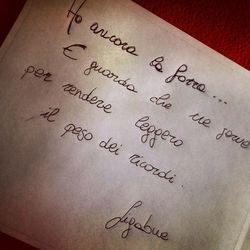 Ho ancora la forza...
E guarda che ne serve
per rendere leggero
il peso dei ricordi.
Ligabue